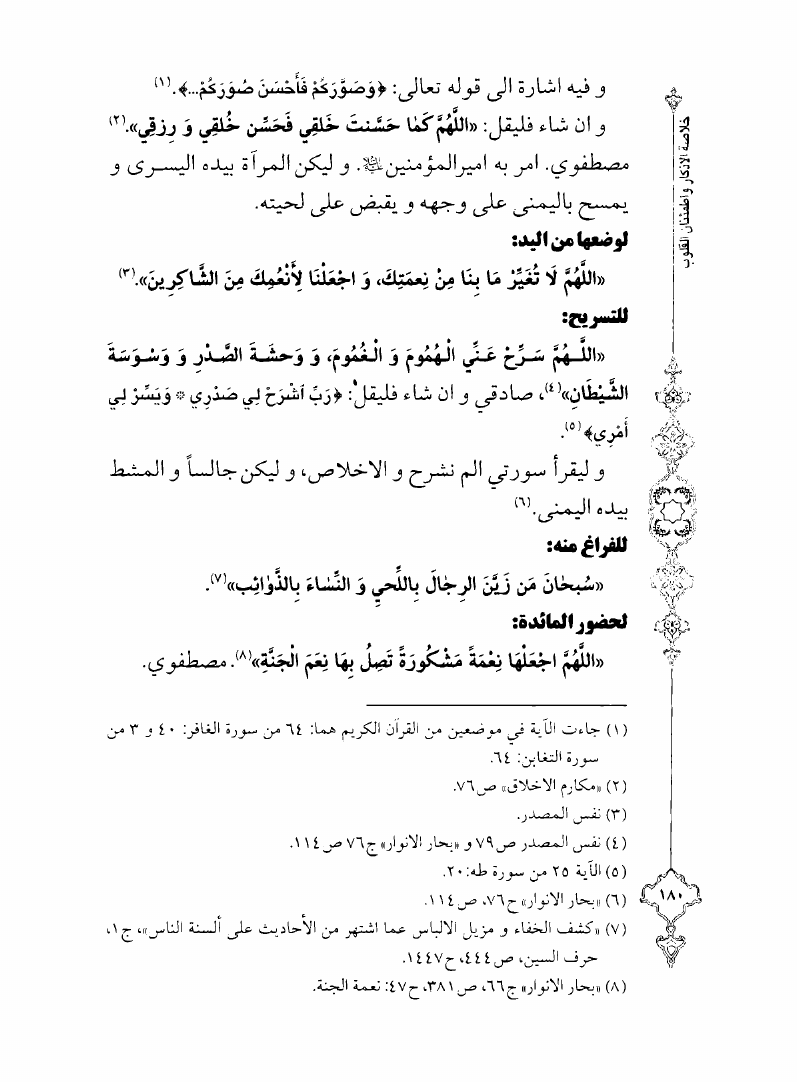 و فيه اشارة الى قوله تعالى: ﴿وَصَوَّرَكُمْ فَأَحْسَنَ صُوَرَكُمْ...﴾.(١)
و ان شاء فليقل: «اللَّهُمَّ كَمٰا حَسَّنتَ خَلقِي فَحَسِّن خُلقِي وَ رِزقِي».(٢)
مصطفوي. امر به اميرالمؤمنين. و ليكن المرآة بيده اليسرى و
يمسح باليمنى على وجهه و يقبض على لحيته.
لوضعها من اليد:
«اللَّهُمَّ لَا تُغَيِّرْ مَا بِنَا مِنْ نِعمَتِكَ، وَ اجْعَلْنَا لِأَنْعُمِكَ مِنَ الشَّاكِرِينَ».(٣)
للتسريح:
«اللَّهُمَّ سَرِّحْ عَنِّي الْهُمُومَ وَ الْغُمُومَ، وَ وَحشَةَ الصَّدْرِ وَ وَسْوَسَةَ
الشَّيْطَانِ»(٤)، صادقي و ان شاء فليقل: ﴿رَبِّ اَشْرَحْ لِي صَدْرِي * وَيَسِّرْ لِي
أَمْرِي﴾(٥).
و ليقرأ سورتي الم نشرح و الاخلاص، و ليكن جالساً و المشط
بيده اليمنى.(٦)
للفراغ منه:
«سُبحٰانَ مَن زَيَّنَ الرِجٰالَ بِاللِّحيِ وَ النِّسٰاءَ بِالذَّوٰائِب»(٧).
لحضور المائدة:
«اللَّهُمَّ اجْعَلْهَا نِعْمَةً مَشْكُورَةً تَصِلُ بِهَا نِعَمَ الْجَنَّةِ»(٨). مصطفوي.
(١) جاءت الآية في موضعين من القرآن الكريم هما: ٦٤ من سورة الغافر: ٤٠ و ٣ من
سورة التغابن: ٦٤.
(٢) «مكارم الاخلاق» ص٧٦.
(٣) نفس المصدر.
(٤) نفس المصدر ص٧٩ و «بحار الانوار» ج٧٦ ص١١٤.
(٥) الآية ٢٥ من سورة طه:٢٠.
(٦) «بحار الانوار» ج٧٦، ص١١٤.
(٧) «كشف الخفاء و مزيل الالباس عما اشتهر من الأحاديث على ألسنة الناس»، ج١،
حرف السين، ص٤٤٤، ح١٤٤٧.
(٨) «بحار الانوار» ج٦٦، ص٣٨١، ح٤٧: نعمة الجنة.
خلاصة الاذكار و اطمئنان القلوب
١٨٠